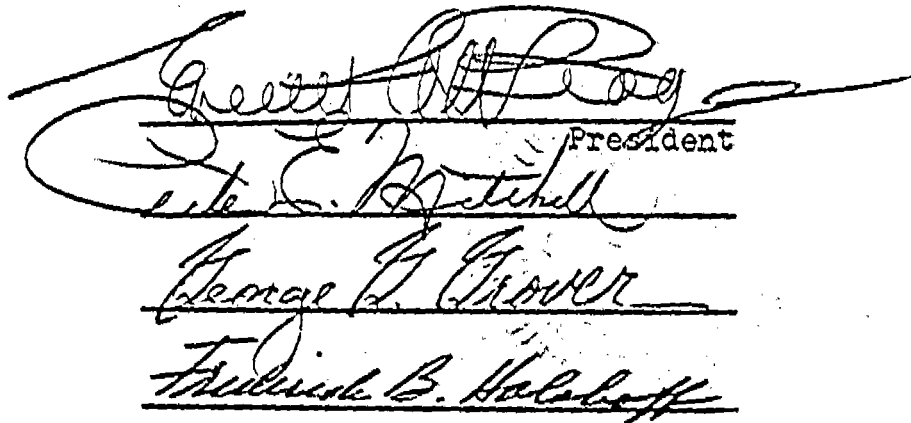 Everett
President
Peter E. Mitchell
George G. Grover
Frederick B. Holoboff